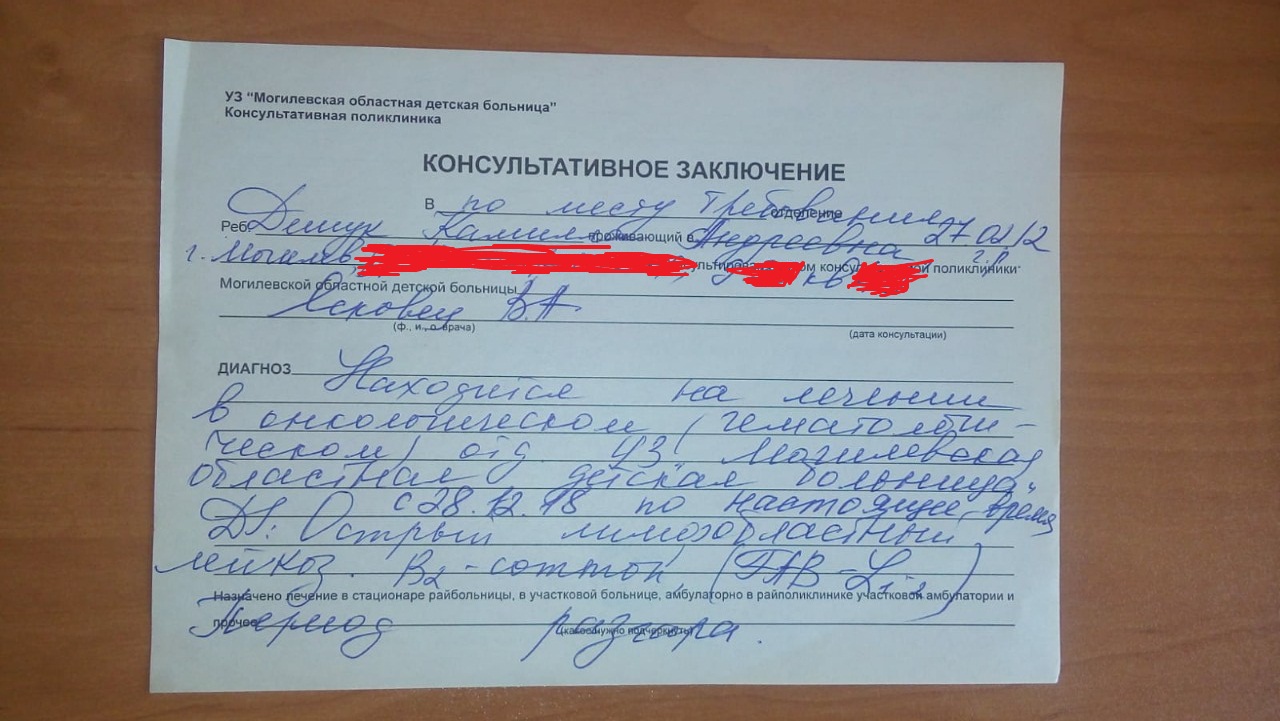 УЗ "Могилевская областная детская больница"
Консультативная поликлиника
КОНСУЛЬТАТИВНОЕ ЗАКЛЮЧЕНИЕ
В по месту требования отделение
Реб Дешук Камилла проживающий в Андреевна 27 02 12
г. Могилев кв г.р. ом консу ой поликлиники
Могилевской областной детской больницы
Ясковец В.А
(ф., и., о. врача) (дата консультации)
ДИАГНОЗ Находится на лечении
в онкологическом (гематологи-
ческом) отд. УЗ "Могилевская
областная детская больница"
с 28.12.18 по настоящее время
DS: Острый лимфобластный
лейкоз. B2-common, (FAB-L1-2)
Назначено лечение в стационаре райбольницы, в участковой больнице, амбулаторно в райполиклинике участковой амбулатории и
прочее Период разгара.
(какое нужно подчеркнуть)